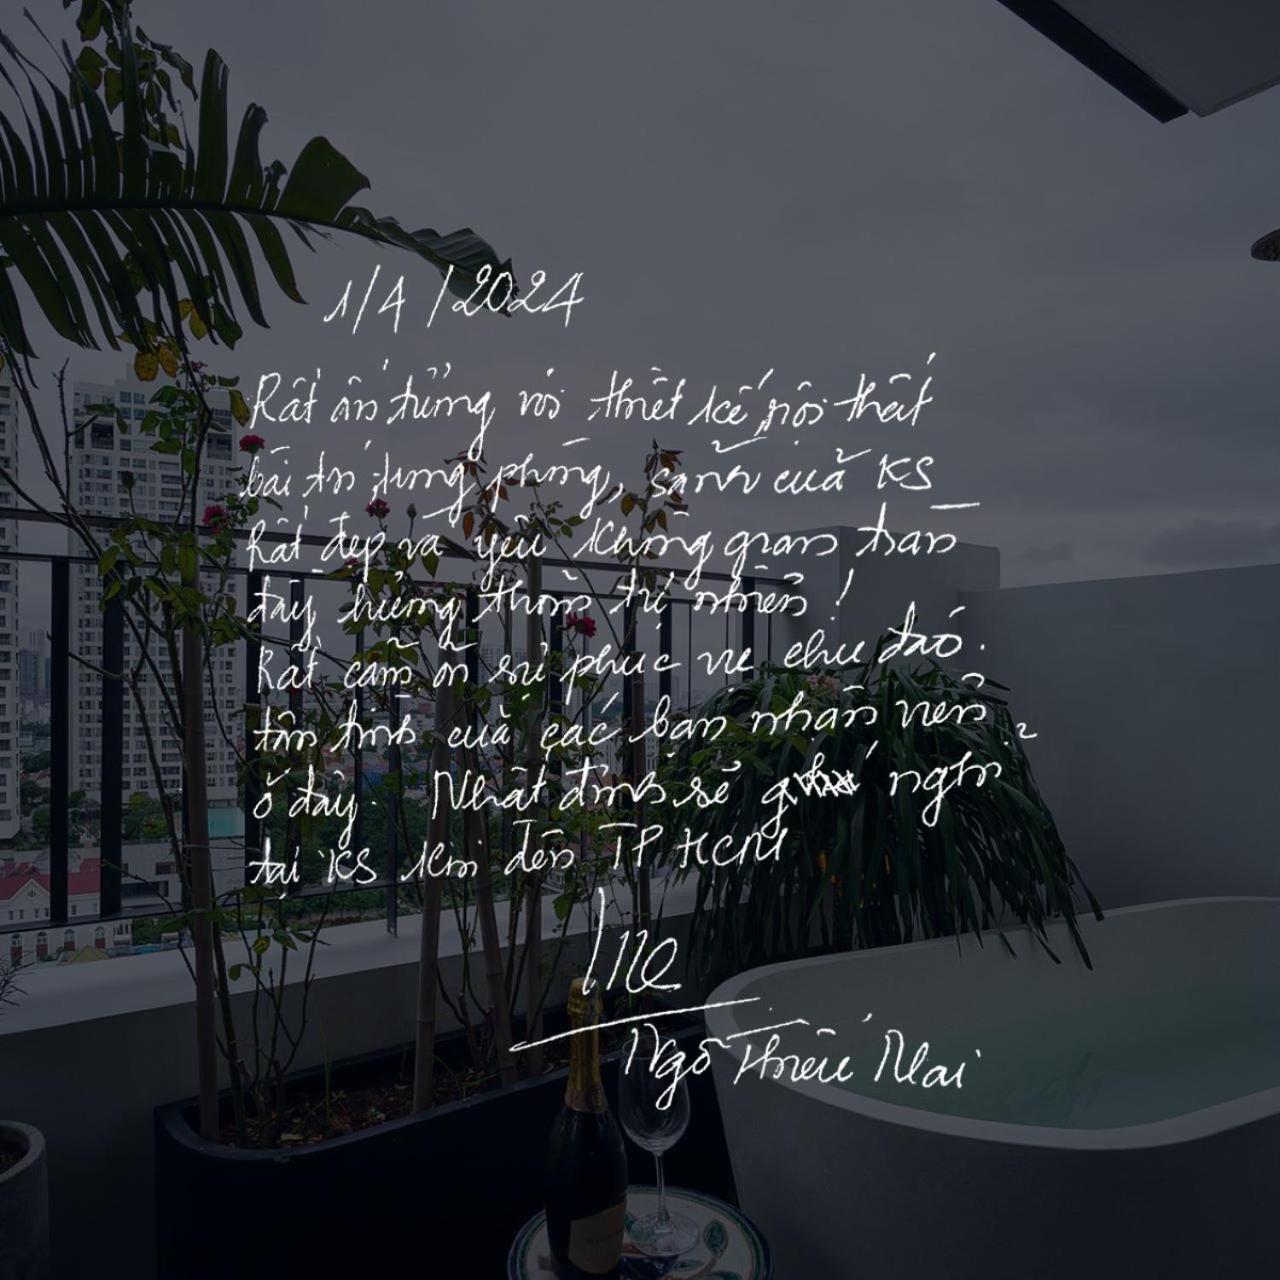 1/4/2024
Rất ấn tượng với thiết kế, nội thất
bài trí từng phòng, sảnh của KS
Rất đẹp và yêu không gian tràn
đầy hứng thiên nhiên!
Rất cảm ơn sự phục vụ chu đáo.
tận tình của các bạn nhân viên
ở đây. Nhất định sẽ nghỉ
tại KS khi đến TP HCM
Ngô Thiếu Mai